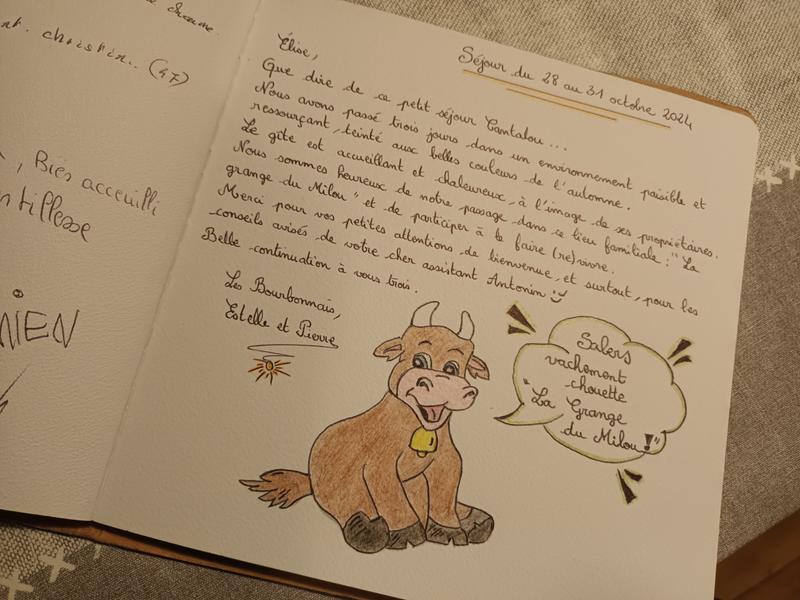 Séjour du 28 au 31 octobre 2024
Élise,
Que dire de ce petit séjour Cantalou...
Nous avons passé trois jours dans un environnement paisible et
ressourçant, teinté aux belles couleurs de l'automne.
Le gîte est accueillant et chaleureux, à l'image de ses propriétaires.
Nous sommes heureux de notre passage dans ce lieu familiale : "La
grange du Milou" et de participer à le faire (re)vivre.
Merci pour vos petites attentions de bienvenue, et surtout, pour les
conseils avisés de votre cher assistant Antonin
Belle continuation à vous trois.
Les Bourbonnais,
Estelle et Pierre
Salers
vachement
chouette
"La Grange
du Milou !"
christin.. (47)
, Bies acceuilli